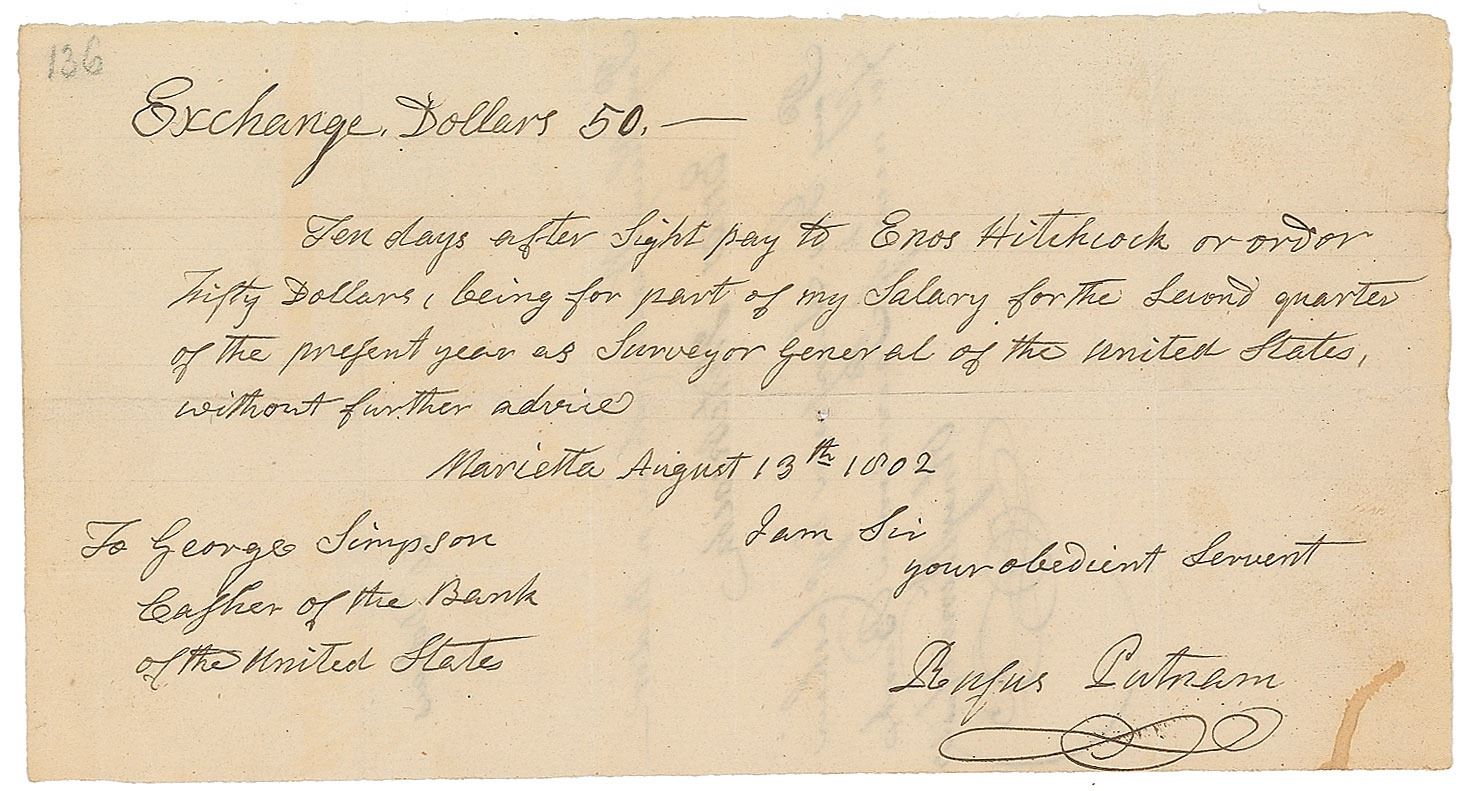 136
Exchange. Dollars 50. —
Ten days after Sight pay to Enos Hitchcock or order
Fifty Dollars, being for part of my Salary for the Second quarter
of the present year as Surveyor General of the United States,
without further advice
Marietta August 13th 1802
To George Simpson
Casher of the Bank
of the United States
I am Sir
your obedient Servent
Rufus Putnam